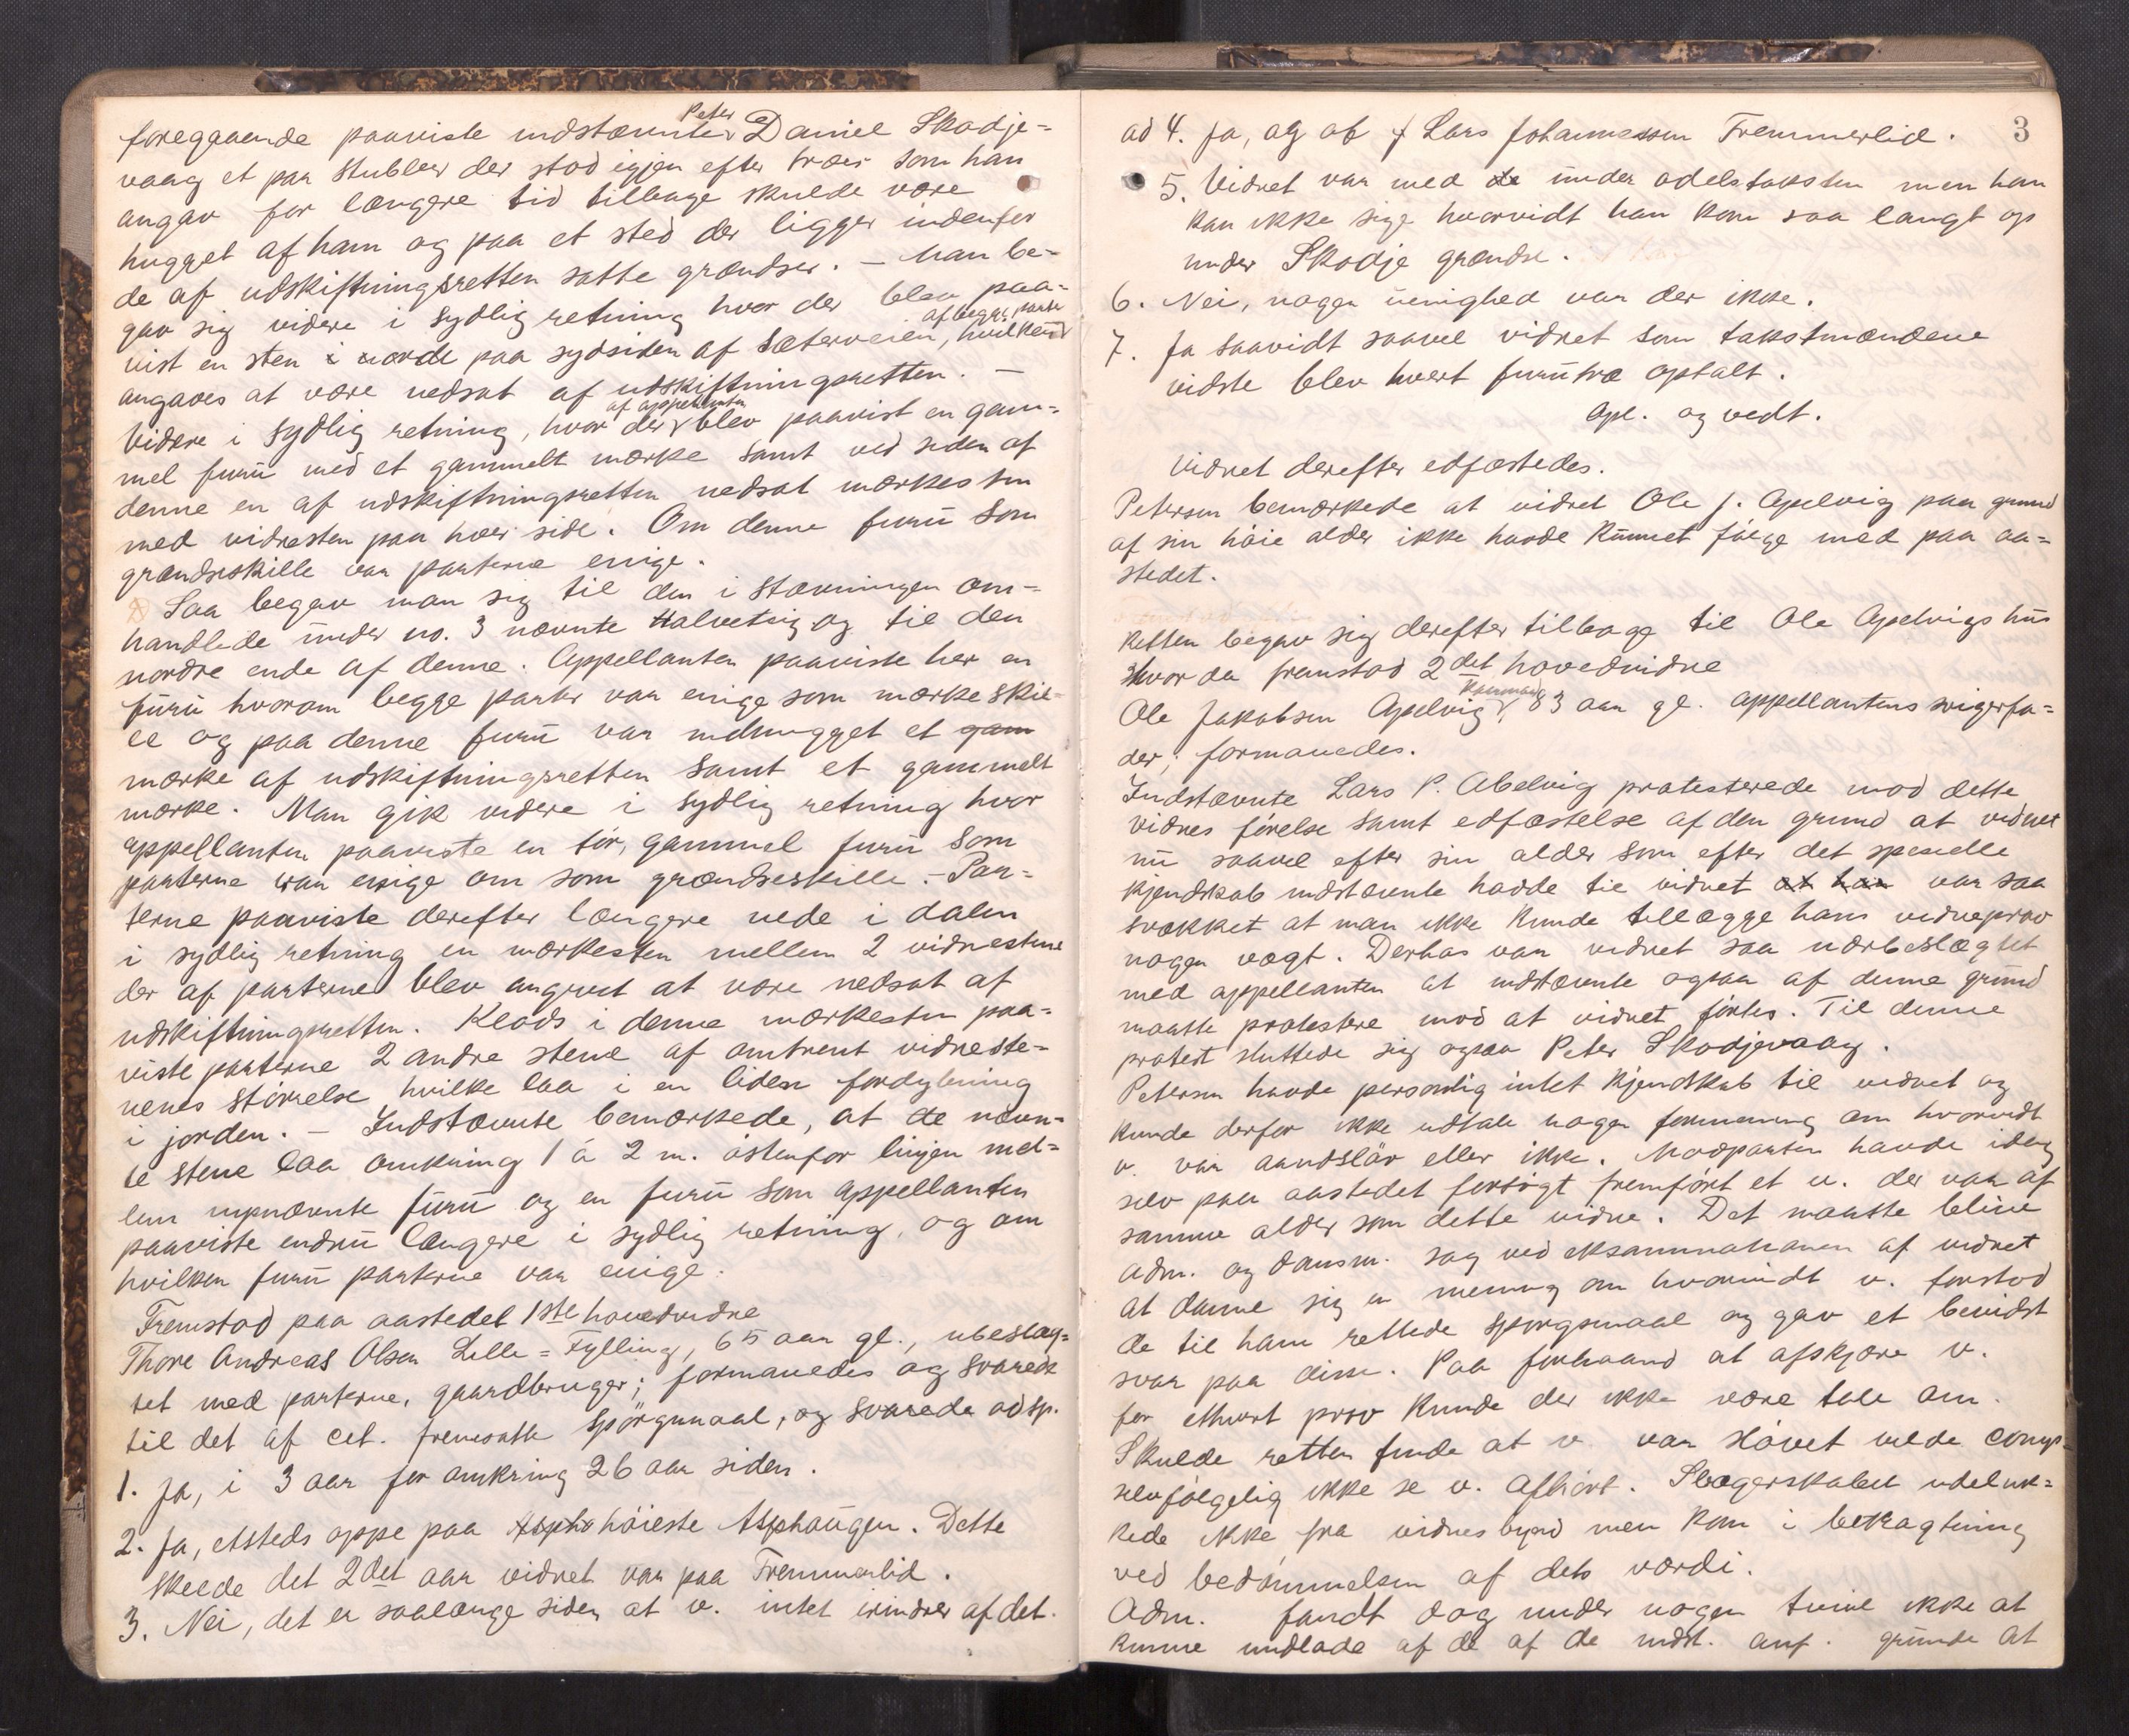 foregaaende paaviste indstævnte Peter Daniel Skodje-
vaag et par stubber der stod igjen efter træer som han
angav for længere tid tilbage skulde være
hugget af ham og paa et sted der ligger indenfor
de af udskiftningsretten satte grændser. – Man be-
gav sig videre i sydlig retning hvor der blev paa-
vist en sten i nærde paa sydsiden af sæterveien, af begge parter hvilken
angaves at være nedsat af udskiftningsretten. –
Videre i sydlig retning, hvor der af appellanten blev paavist en gam-
mel furu med et gammelt mærke samt ved siden af
denne en af udskiftningsretten nedsat mærkesten
med vidnesten paa hver side. Om denne furu som
grændseskille var parterne enige.
Saa begav man sig til den i stævningen om-
handlede under no. 3 nævnte Halvetsig og til den
nordre ende af denne. Appellanten paaviste her en
furu hvorom begge parter var enige som mærkeskil-
le og paa denne furu var indhugget et gam
mærke af udskiftningsretten samt et gammelt
mærke. Man gik videre i sydlig retning hvor
appellanten paaviste en tør, gammel furu som
parterne var enige om som grændseskille. – Par-
terne paaviste derefter længere nede i dalen
i sydlig retning en mærkesten mellem 2 vidnestene
der af parterne blev angivet at være nedsat af
udskiftningsretten. Klods i denne mærkesten paa-
viste parterne 2 andre stene af omtrent vidneste-
nenes størrelse hvilke laa i en liden fordybning
i jorden. – Indstævnte bemærkede, at de nævn-
te stene laa omkring 1 à 2 m. østenfor linjen mel-
lem nynævnte furu og en furu som appellanten
paaviste endnu længere i sydlig retning, og om
hvilken furu parterne var enige.
Fremstod paa aastedet 1ste hovedvidne
Thore Andreas Olsen Lille-Fylling, 65 aar gl., ubeslæg-
tet med parterne, gaardbruger; formanedes og svarede
til det af cit. fremsatte spørgsmaal, og svarede ad sp.
1. Ja, i 3 aar for omkring 26 aar siden.
2. Ja, etsteds oppe paa Asph høieste Asphaugen. Dette
skeede det 2det aar vidnet var paa Fremmerlid.
3. Nei, det er saalænge siden at v. intet erindrer af det.
3
ad 4. Ja, og af f Lars Johannessen Fremmerlid.
5. Vidnet var med de under odelstaksten men han
kan ikke sige hvorvidt han kom saa langt op
under Skodje grændse.
6. Nei, nogen uenighed var der ikke.
7. Ja saavidt saavel vidnet som takstmændene
vidste blev hvert furutræ optalt.
Opl. og vedt.
Vidnet derefter edfæstedes.
Petersen bemærkede at vidnet Ole J. Apelvig paa grund
af sin høie alder ikke havde kunnet følge med paa aa-
stedet.
Retten begav sig derefter tilbage til Ole Apelvigs hus
hvor da fremstod 2det hovedvidne
Ole Jakobsen Apelvig, kaarmand 83 aar gl. appellantens svigerfa-
der; formanedes.
Indstævnte Lars P. Abelvig protesterede mod dette
vidnes førelse samt edfæstelse af den grund at vidnet
nu saavel efter sin alder som efter det specielle
kjendskab indstævnte havde til vidnet at han var saa
svækket at man ikke kunde tillægge hans vidneprov
nogen vægt. Derhos var vidnet saa nærbeslægtet
med appellanten at indstævnte ogsaa af denne grund
maatte protestere mod at vidnet førtes. Til denne
protest sluttede sig ogsaa Peter Skodjevaag.
Petersen havde personlig intet kjendskab til vidnet og
kunde derfor ikke udtale nogen formening om hvorvidt
v. var aandsløv eller ikke. Modparten havde idag
selv paa aastedet forsøgt fremført et v. der var af
samme alder som dette vidne. Det maatte blive
adm. og domsm. sag ved eksaminationen af vidnet
at danne sig en mening om hvorvidt v. forstod
de til ham rettede spørgsmaal og gav et bevidst
svar paa disse. Paa forhaand at afskjære v.
for ethvert prov kunde der ikke være tale om.
Skulde retten finde at v. var sløvet vilde comp.
selvfølgelig ikke se v. afhørt. Svogerskabet udeluk-
kede ikke fra vidnesbyrd men kom i betragtning
ved bedømmelsen af dets værdi.
Adm. fandt dog under nogen tvivl ikke at
kunne undlade af de af de indst. anf. grunde at